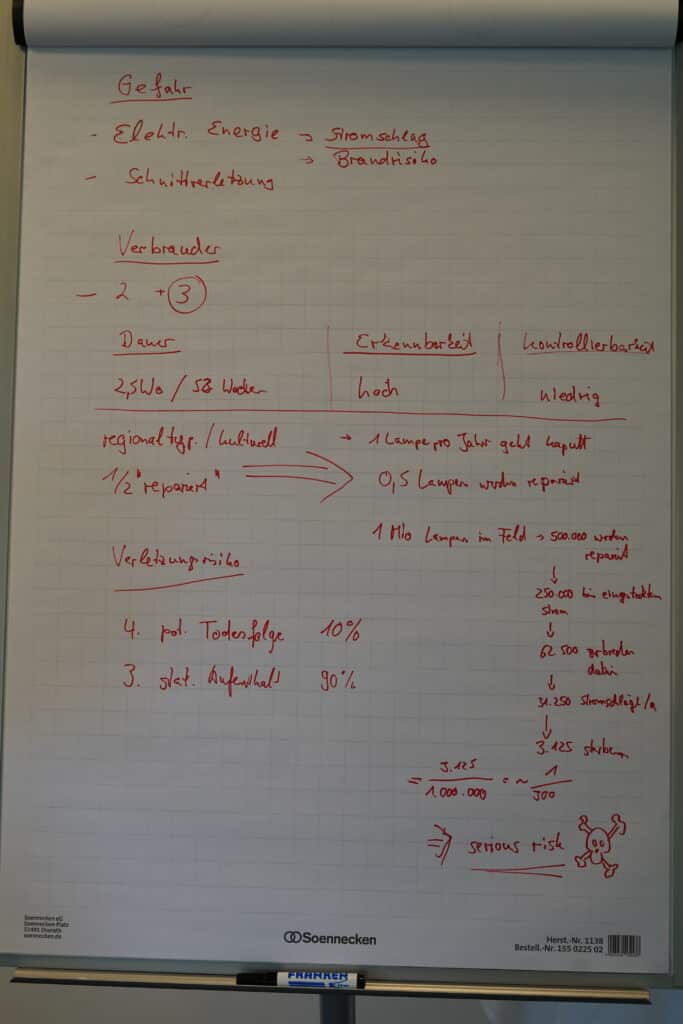 Gefahr
- Elektr. Energie → Stromschlag
→ Brandrisiko
- Schnittverletzung
Verbraucher
- 2 + 3
Dauer Erkennbarkeit Kontrollierbarkeit
2,5 Wo / 52 Wochen hoch niedrig
regionaltyp. / kulturell → 1 Lampe pro Jahr geht kaputt
1/2 "repariert" ⇒ 0,5 Lampen werden repariert
1 Mio Lampen im Feld → 500.000 werden
repariert
↓
Verletzungsrisiko
250.000 bei eingestecktem
Strom
↓
4. pot. Todesfolge 10%
62.500 zerbrechen
dabei
↓
3. stat. Aufenthalt 90%
31.250 Stromschläge/a
↓
3.125 sterben
= 3.125 / 1.000.000 = ~ 1 / 300
⇒ serious risk
Soennecken eG
Soennecken-Platz
51491 Overath
soennecken.de
Soennecken
Herst.-Nr. 1138
Bestell.-Nr. 155 0225 02
FRANKEN